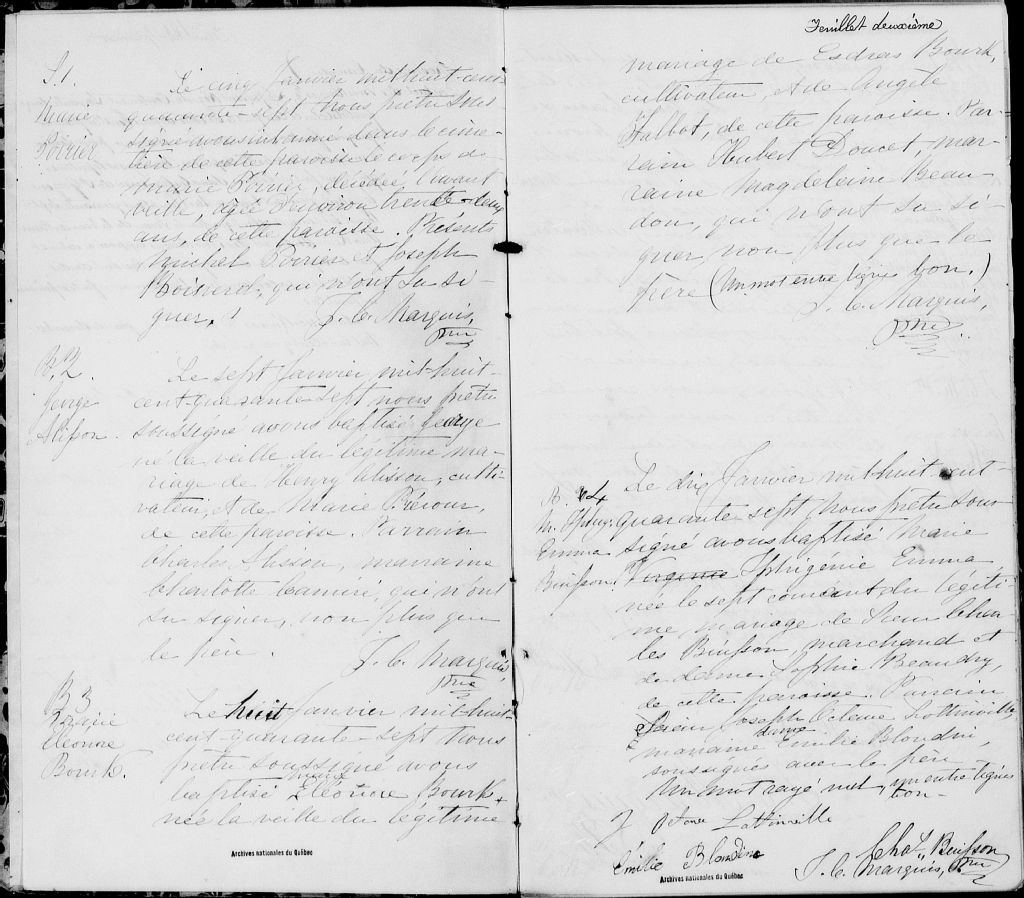 S. 1.
Marie
Poirier
Le cinq Janvier mil huit-cent-
quarante-sept nous prêtre sous
signé avons inhumé dans le cime-
tière de cette paroisse le corps de
Marie Poirier, décédée l'avant
veille, âgée d'environ trente-deux
ans, de cette paroisse. Présents
Michel Poirier et Joseph
Boisvert, qui n'ont su si-
gner.
J. C. Marquis,
Ptre
B. 2.
George
Alisson.
Le sept Janvier mil-huit-
cent-quarante sept nous prêtre
soussigné avons baptisé George
né la veille du légitime ma-
riage de Henry Alisson, culti-
vateur, et de Marie
de cette paroisse. Parrain
Charles Alisson, marraine
Charlotte Camiré, qui n'ont
su signer, non plus que
le père.
J. C. Marquis,
Ptre
B 3
Marie
Eléonore
Bourk.
Le huit Janvier mil-huit-
cent-quarante-sept nous
prêtre soussigné avons
Marie
baptisé Eléonore Bourk
née la veille du légitime
Archives nationales du Québec
Feuillet deuxième
mariage de Esdras Bourk,
cultivateur, et de Angèle
Talbot, de cette paroisse. Par-
rain Hubert Doucet, mar-
raine Magdeleine Beau
don, qui n'ont su si-
gner, non plus que le
père (Un mot entre lignes bon.)
J. C. Marquis,
Ptre
B. 4
M. Iphig.
Emma
Buisson.
Le dix Janvier mil-huit-cent-
quarante sept nous prêtre sous
signé avons baptisé Marie
Virginie Iphigénie Emma
née le sept courant du légiti
me mariage de Sieur Char
les Buisson, marchand et
de dame Sophie Beaudry,
de cette paroisse. Parrain
Sieur Joseph Octave Lottinville,
dame
marraine Emilie Blondin,
soussignés avec le père.
Un mot rayé nul un entre lignes
bon-
J Octave Lottinville
Émilie Blondin
Chas. Buisson
J. C. Marquis, Ptre
Archives nationales du Québec